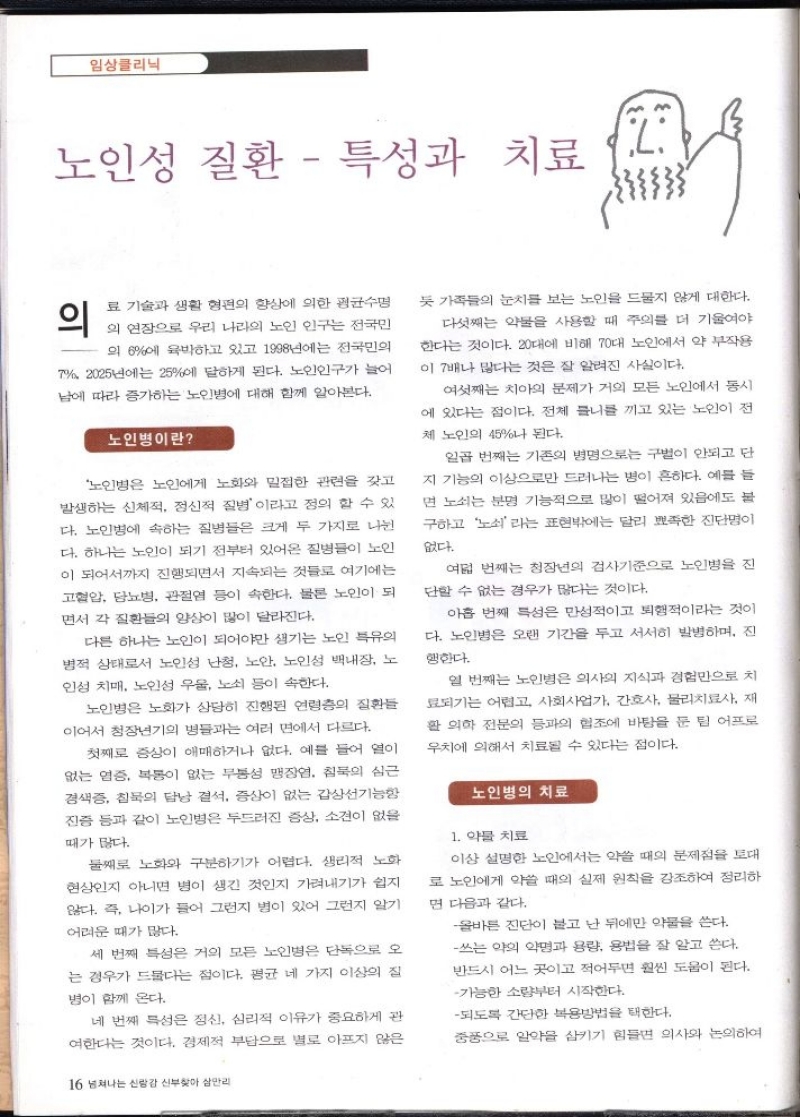 임상클리닉
노인성 질환 - 특성과 치료
의료 기술과 생활 형편의 향상에 의한 평균수명
의 연장으로 우리 나라의 노인 인구는 전국민
의 6%에 육박하고 있고 1998년에는 전국민의
7%, 2025년에는 25%에 달하게 된다. 노인인구가 늘어
남에 따라 증가하는 노인병에 대해 함께 알아본다.
노인병이란?
'노인병은 노인에게 노화와 밀접한 관련을 갖고
발생하는 신체적, 정신적 질병' 이라고 정의 할 수 있
다. 노인병에 속하는 질병들은 크게 두 가지로 나뉜
다. 하나는 노인이 되기 전부터 있어온 질병들이 노인
이 되어서까지 진행되면서 지속되는 것들로 여기에는
고혈압, 당뇨병, 관절염 등이 속한다. 물론 노인이 되
면서 각 질환들의 양상이 많이 달라진다.
다른 하나는 노인이 되어야만 생기는 노인 특유의
병적 상태로서 노인성 난청, 노안, 노인성 백내장, 노
인성 치매, 노인성 우울, 노쇠 등이 속한다.
노인병은 노화가 상당히 진행된 연령층의 질환들
이어서 청장년기의 병들과는 여러 면에서 다르다.
첫째로 증상이 애매하거나 없다. 예를 들어 열이
없는 염증, 복통이 없는 무통성 맹장염, 침묵의 심근
경색증, 침묵의 담낭 결석, 증상이 없는 갑상선기능항
진증 등과 같이 노인병은 두드러진 증상, 소견이 없을
때가 많다.
둘째로 노화와 구분하기가 어렵다. 생리적 노화
현상인지 아니면 병이 생긴 것인지 가려내기가 쉽지
않다. 즉, 나이가 들어 그런지 병이 있어 그런지 알기
어려운 때가 많다.
세 번째 특성은 거의 모든 노인병은 단독으로 오
는 경우가 드물다는 점이다. 평균 네 가지 이상의 질
병이 함께 온다.
네 번째 특성은 정신, 심리적 이유가 중요하게 관
여한다는 것이다. 경제적 부담으로 별로 아프지 않은
듯 가족들의 눈치를 보는 노인을 드물지 않게 대한다.
다섯째는 약물을 사용할 때 주의를 더 기울여야
한다는 것이다. 20대에 비해 70대 노인에서 약 부작용
이 7배나 많다는 것은 잘 알려진 사실이다.
여섯째는 치아의 문제가 거의 모든 노인에서 동시
에 있다는 점이다. 전체 틀니를 끼고 있는 노인이 전
체 노인의 45%나 된다.
일곱 번째는 기존의 병명으로는 구별이 안되고 단
지 기능의 이상으로만 드러나는 병이 흔하다. 예를 들
면 노쇠는 분명 기능적으로 많이 떨어져 있음에도 불
구하고 '노쇠' 라는 표현밖에는 달리 뾰족한 진단명이
없다.
여덟 번째는 청장년의 검사기준으로 노인병을 진
단할 수 없는 경우가 많다는 것이다.
아홉 번째 특성은 만성적이고 퇴행적이라는 것이
다. 노인병은 오랜 기간을 두고 서서히 발병하며, 진
행한다.
열 번째는 노인병은 의사의 지식과 경험만으로 치
료되기는 어렵고, 사회사업가, 간호사, 물리치료사, 재
활 의학 전문의 등과의 협조에 바탕을 둔 팀 어프로
우치에 의해서 치료될 수 있다는 점이다.
노인병의 치료
1. 약물 치료
이상 설명한 노인에서는 약쓸 때의 문제점을 토대
로 노인에게 약쓸 때의 실제 원칙을 강조하여 정리하
면 다음과 같다.
-올바른 진단이 붙고 난 뒤에만 약물을 쓴다.
-쓰는 약의 약명과 용량, 용법을 잘 알고 쓴다.
반드시 어느 곳이고 적어두면 훨씬 도움이 된다.
-가능한 소량부터 시작한다.
-되도록 간단한 복용방법을 택한다.
중풍으로 알약을 삼키기 힘들면 의사와 논의하여
16 넘쳐나는 신랑감 신부찾아 삼만리